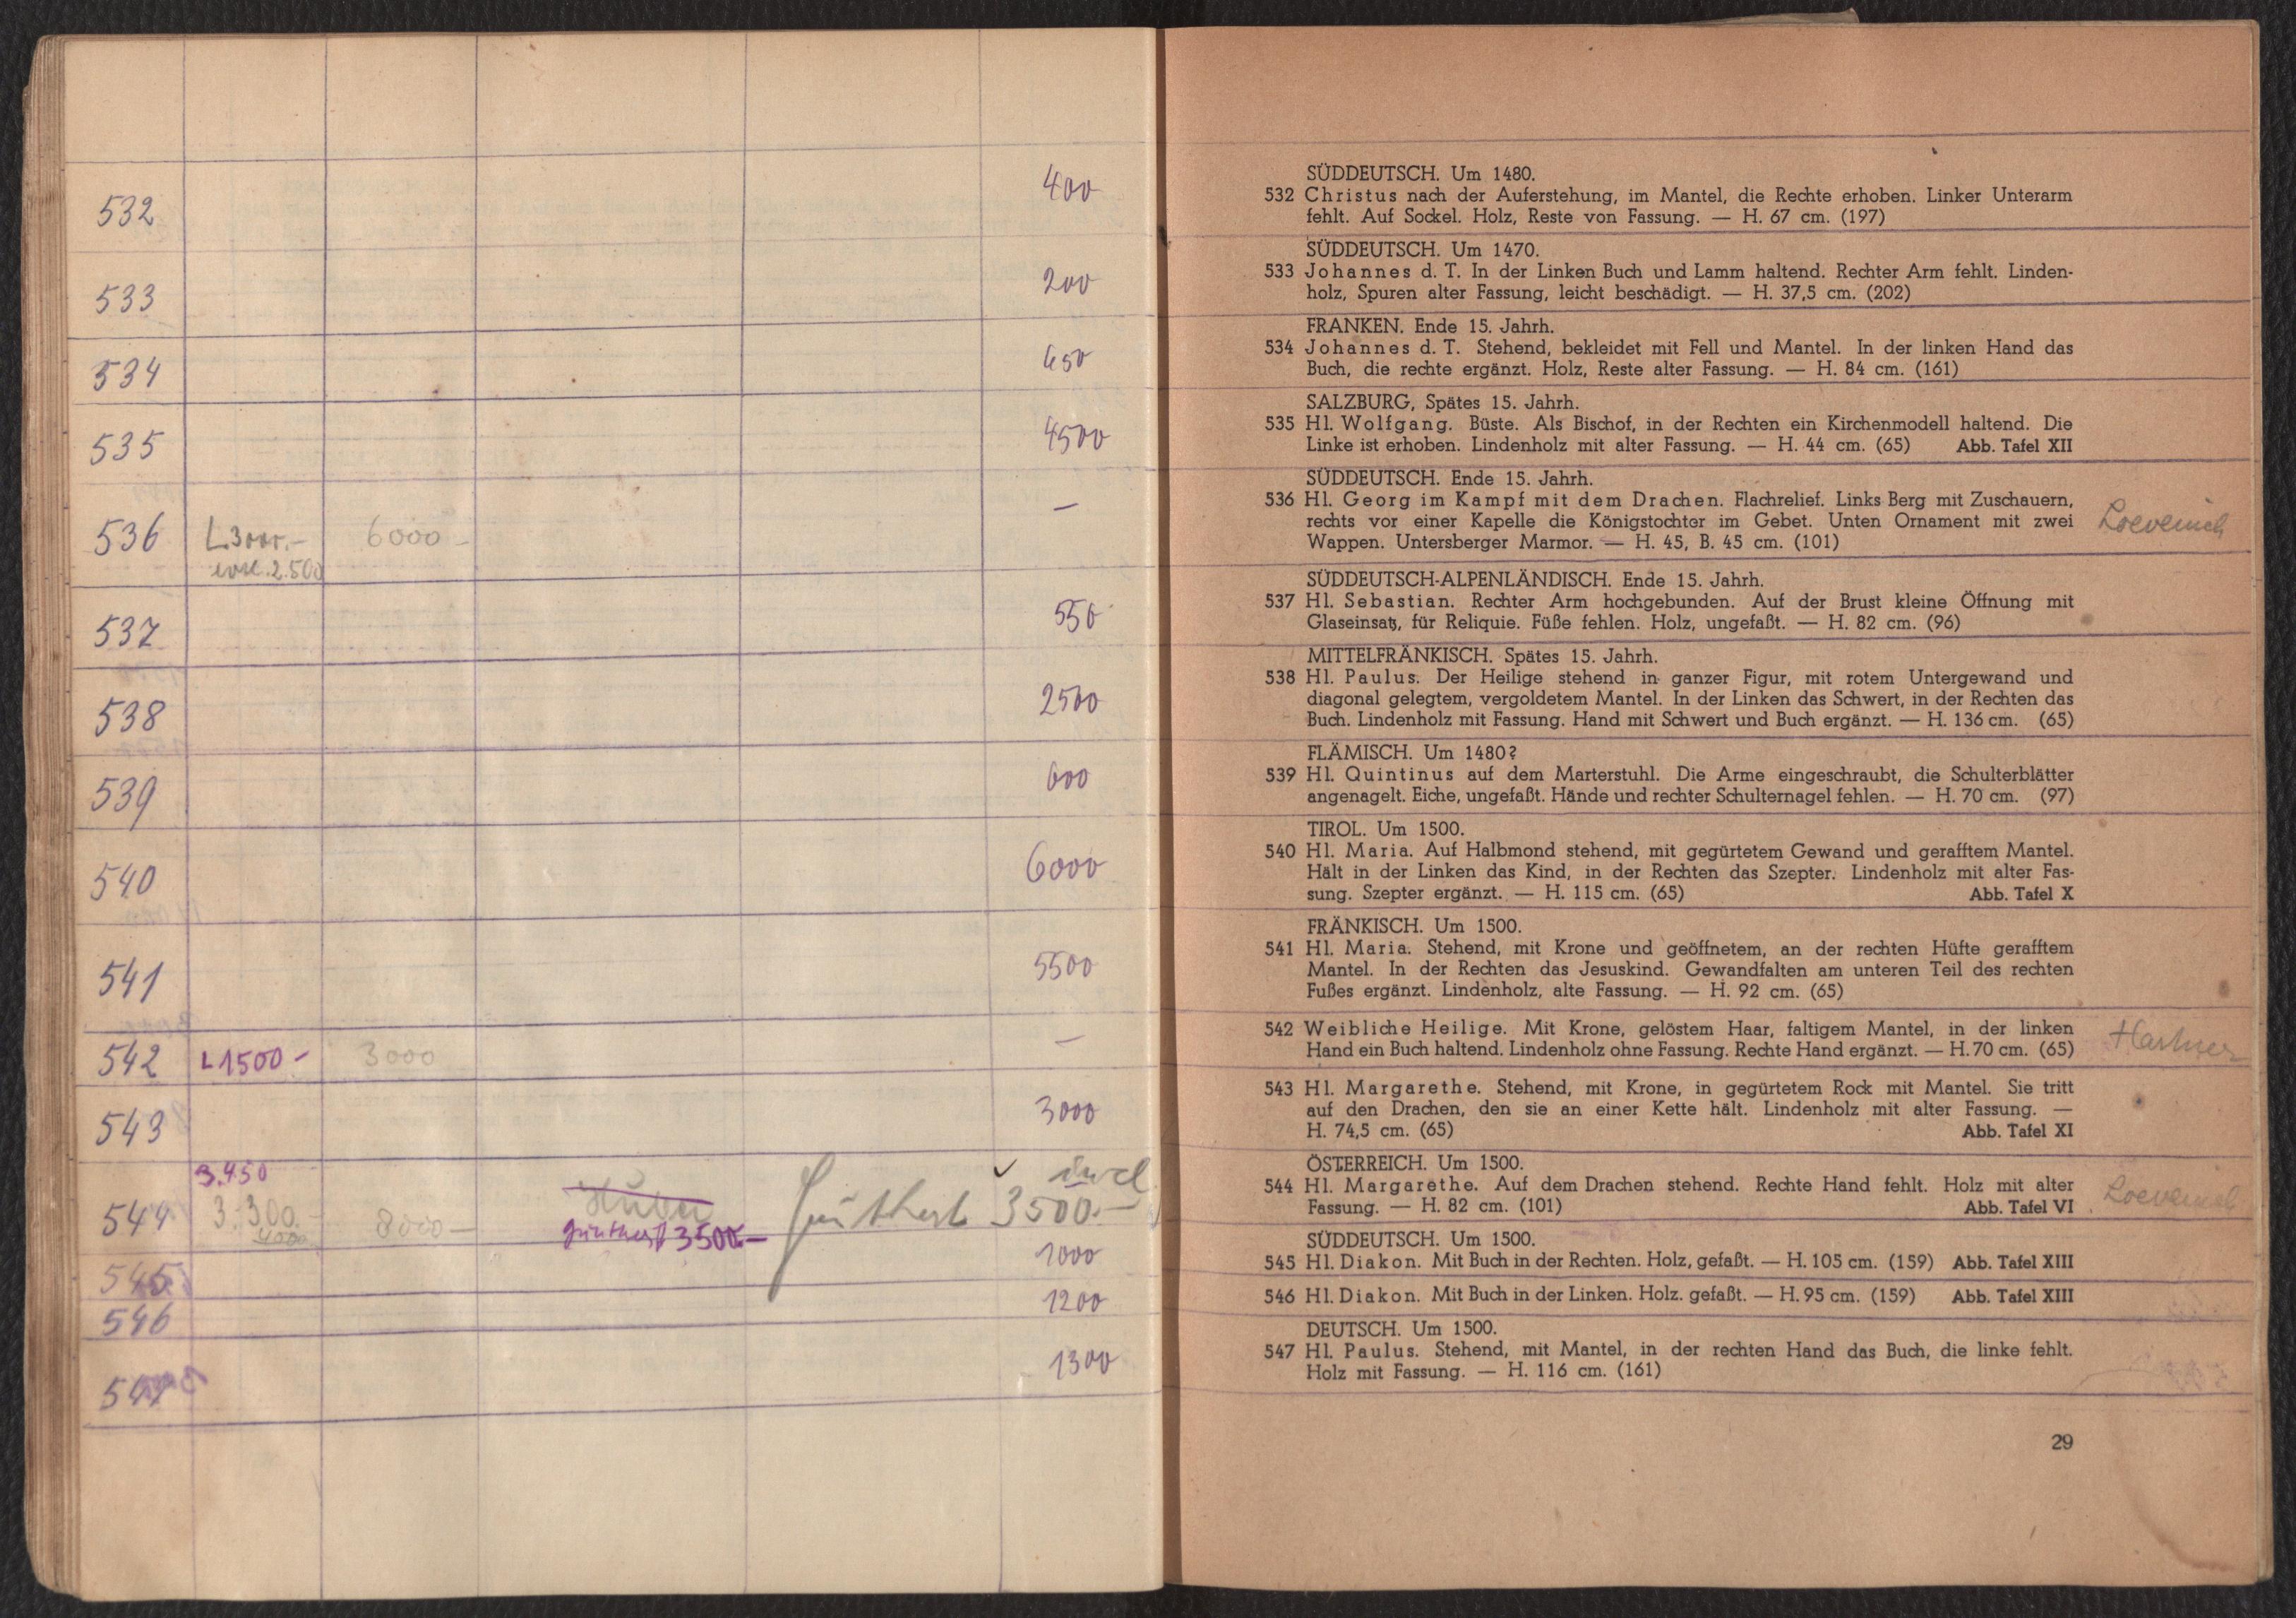 400
532
200
533
650
534
4500
535
—
536 L3000.- 6000-
2.500
550
537
2500
538
600
539
6000
540
5500
541
—
542 L1500- 3000
3000
543
3.450
544 3.300.- 8000- Huber
4000
3500.-
3500.-
1000
545
1200
546
1300
547
SÜDDEUTSCH. Um 1480.
532 Christus nach der Auferstehung, im Mantel, die Rechte erhoben. Linker Unterarm
fehlt. Auf Sockel. Holz, Reste von Fassung. — H. 67 cm. (197)
SÜDDEUTSCH. Um 1470.
533 Johannes d. T. In der Linken Buch und Lamm haltend. Rechter Arm fehlt. Linden-
holz, Spuren alter Fassung, leicht beschädigt. — H. 37,5 cm. (202)
FRANKEN. Ende 15. Jahrh.
534 Johannes d. T. Stehend, bekleidet mit Fell und Mantel. In der linken Hand das
Buch, die rechte ergänzt. Holz, Reste alter Fassung. — H. 84 cm. (161)
SALZBURG, Spätes 15. Jahrh.
535 Hl. Wolfgang. Büste. Als Bischof, in der Rechten ein Kirchenmodell haltend. Die
Linke ist erhoben. Lindenholz mit alter Fassung. — H. 44 cm. (65) Abb. Tafel XII
SÜDDEUTSCH. Ende 15. Jahrh.
536 Hl. Georg im Kampf mit dem Drachen. Flachrelief. Links Berg mit Zuschauern,
rechts vor einer Kapelle die Königstochter im Gebet. Unten Ornament mit zwei
Wappen. Untersberger Marmor. — H. 45, B. 45 cm. (101)
Loevenich
SÜDDEUTSCH-ALPENLÄNDISCH. Ende 15. Jahrh.
537 Hl. Sebastian. Rechter Arm hochgebunden. Auf der Brust kleine Öffnung mit
Glaseinsatz, für Reliquie. Füße fehlen. Holz, ungefaßt. — H. 82 cm. (96)
MITTELFRÄNKISCH. Spätes 15. Jahrh.
538 Hl. Paulus. Der Heilige stehend in ganzer Figur, mit rotem Untergewand und
diagonal gelegtem, vergoldetem Mantel. In der Linken das Schwert, in der Rechten das
Buch. Lindenholz mit Fassung. Hand mit Schwert und Buch ergänzt. — H. 136 cm. (65)
FLÄMISCH. Um 1480?
539 Hl. Quintinus auf dem Marterstuhl. Die Arme eingeschraubt, die Schulterblätter
angenagelt. Eiche, ungefaßt. Hände und rechter Schulternagel fehlen. — H. 70 cm. (97)
TIROL. Um 1500.
540 Hl. Maria. Auf Halbmond stehend, mit gegürtetem Gewand und gerafftem Mantel.
Hält in der Linken das Kind, in der Rechten das Szepter. Lindenholz mit alter Fas-
sung. Szepter ergänzt. — H. 115 cm. (65) Abb. Tafel X
FRÄNKISCH. Um 1500.
541 Hl. Maria. Stehend, mit Krone und geöffnetem, an der rechten Hüfte gerafftem
Mantel. In der Rechten das Jesuskind. Gewandfalten am unteren Teil des rechten
Fußes ergänzt. Lindenholz, alte Fassung. — H. 92 cm. (65)
542 Weibliche Heilige. Mit Krone, gelöstem Haar, faltigem Mantel, in der linken
Hand ein Buch haltend. Lindenholz ohne Fassung. Rechte Hand ergänzt. — H. 70 cm. (65)
543 Hl. Margarethe. Stehend, mit Krone, in gegürtetem Rock mit Mantel. Sie tritt
auf den Drachen, den sie an einer Kette hält. Lindenholz mit alter Fassung. —
H. 74,5 cm. (65) Abb. Tafel XI
ÖSTERREICH. Um 1500.
544 Hl. Margarethe. Auf dem Drachen stehend. Rechte Hand fehlt. Holz mit alter
Fassung. — H. 82 cm. (101) Abb. Tafel VI
Loevenich
SÜDDEUTSCH. Um 1500.
545 Hl. Diakon. Mit Buch in der Rechten. Holz, gefaßt. — H. 105 cm. (159) Abb. Tafel XIII
546 Hl. Diakon. Mit Buch in der Linken. Holz. gefaßt. — H. 95 cm. (159) Abb. Tafel XIII
DEUTSCH. Um 1500.
547 Hl. Paulus. Stehend, mit Mantel, in der rechten Hand das Buch, die linke fehlt.
Holz mit Fassung. — H. 116 cm. (161)
29